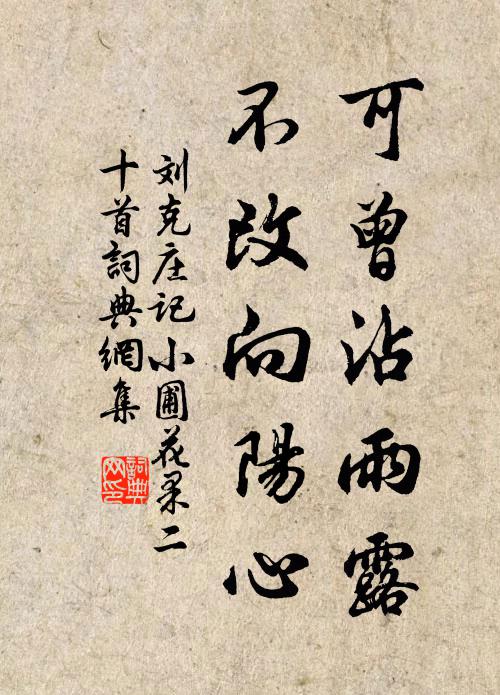 可曾沾雨露
不改向陽心
刘克庄记小圃花果二
十首詞典網集
詞典
网印